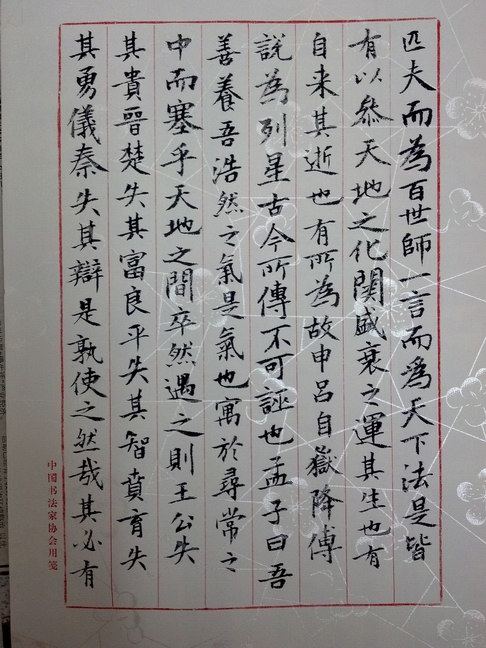 匹夫而為百世師一言而為天下法是皆
有以參天地之化關盛衰之運其生也有
自来其逝也有所為故申吕自嶽降傅
說為列星古今所傳不可誣也孟子曰吾
善養吾浩然之氣是氣也寓於尋常之
中而塞乎天地之間卒然遇之則王公失
其貴晉楚失其富良平失其智賁育失
其勇儀秦失其辯是孰使之然哉其必有
中国书法家协会用笺